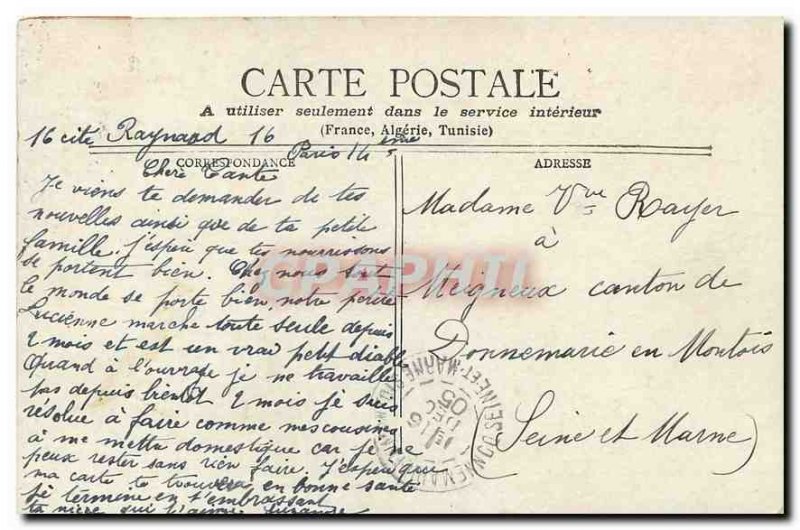 CARTE POSTALE
A utiliser seulement dans le service intérieur
(France, Algérie, Tunisie)
16 cité Raynaud 16
Paris 14 ème
CORRESPONDANCE
Chère Tante
Je viens te demander de tes
nouvelles ainsi que de ta petite
famille. J'espère que tes nourrissons
se portent bien. Chez nous tout
le monde se porte bien, notre petite
Lucienne marche toute seule depuis
2 mois et est un vrai petit diable
Quand à l'ouvrage je ne travaille
pas depuis bientôt 2 mois je suis
résolue à faire comme mes cousines
à me mettre domestique car je ne
peux rester sans rien faire. J'espère que
ma carte te trouvera en bonne santé
Je termine en t'embrassant
ta nièce qui t'aime
ADRESSE
Madame Vve Rayer
à
Meigneux canton de
Donnemarie en Montois
(Seine et Marne)
DONNEMARIE
SEINE ET MARNE
16
DEC
05